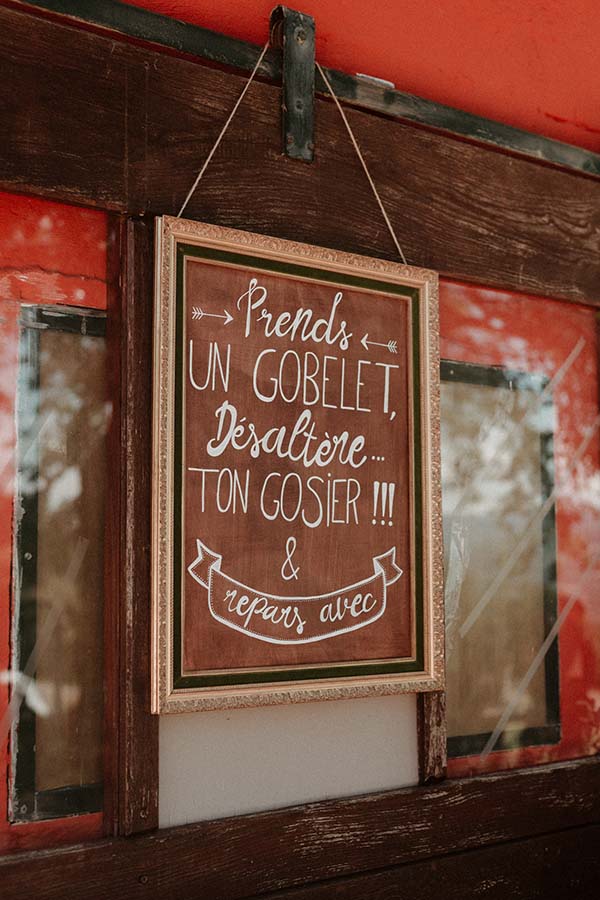 Prends
UN GOBELET,
Désaltère...
TON GOSIER !!!
&
repars avec